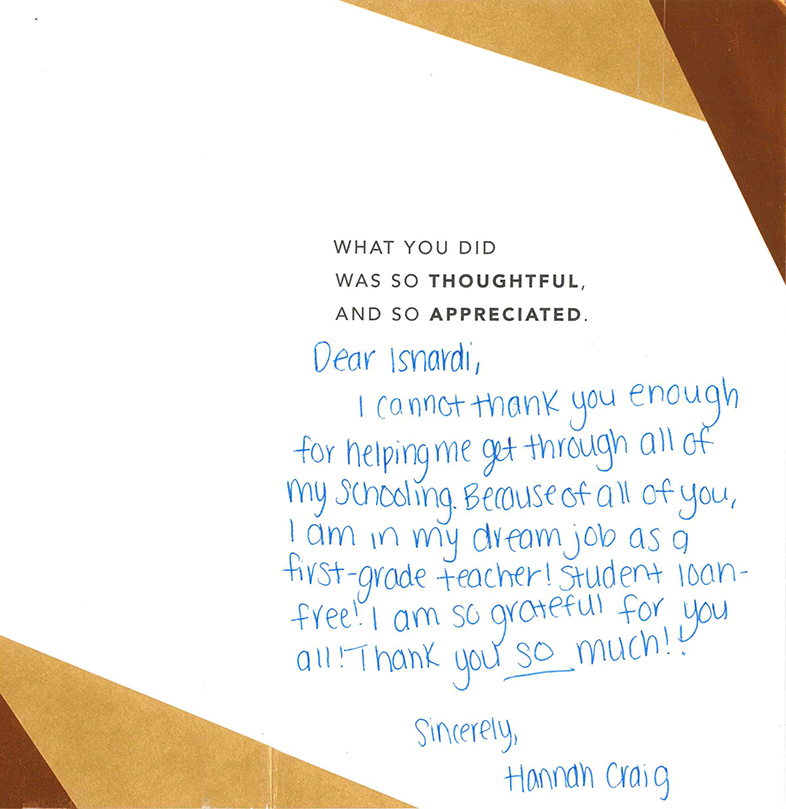 WHAT YOU DID
WAS SO THOUGHTFUL,
AND SO APPRECIATED.
Dear Isnardi,
I cannot thank you enough
for helping me get through all of
my schooling. Because of all of you,
I am in my dream job as a
first-grade teacher! Student loan-
free! I am so grateful for you
all! Thank you so much!!
Sincerely,
Hannah Craig